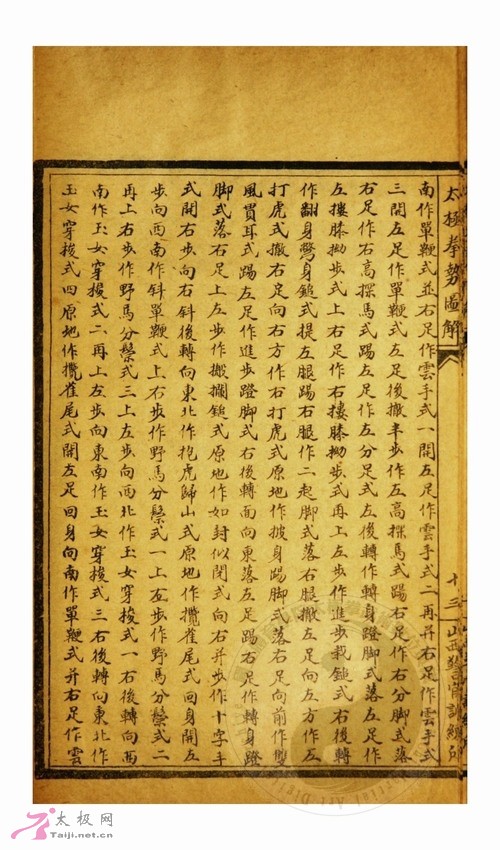 太極拳勢圖解
十三
山西警官訓練所
南作單鞭式並右足作雲手式一開左足作雲手式二再并右足作雲手式
三開左足作單鞭式左足後撤半步作左高探馬式踢右足作右分脚式落
右足作右高探馬式踢左足作左分足式左後轉作轉身蹬脚式落左足作
左摟膝拗步式上右足作右摟膝拗步式再上左步作進步栽鎚式右後轉
作翻身彆身鎚式提左腿踢右腿作二起脚式落右腿撤左足向左方作左
打虎式撤右足向右方作右打虎式原地作披身踢脚式落右足向前作雙
風貫耳式踢左足作進步蹬脚式右後轉面向東落左足踢右足作轉身蹬
脚式落右足上左步作搬攔鎚式原地作如封似閉式向右并步作十字手
式開右步向右斜後轉向東北作抱虎歸山式原地作攬雀尾式回身開左
步向西南作斜單鞭式上右步作野馬分鬃式一上左步作野馬分鬃式二
再上右步作野馬分鬃式三上左步向西北作玉女穿梭式一右後轉向西
南作玉女穿梭式二再上左步向東南作玉女穿梭式三右後轉向東北作
玉女穿梭式四原地作攬雀尾式開左足回身向南作單鞭式并右足作雲
太极网
Taiji.net.cn